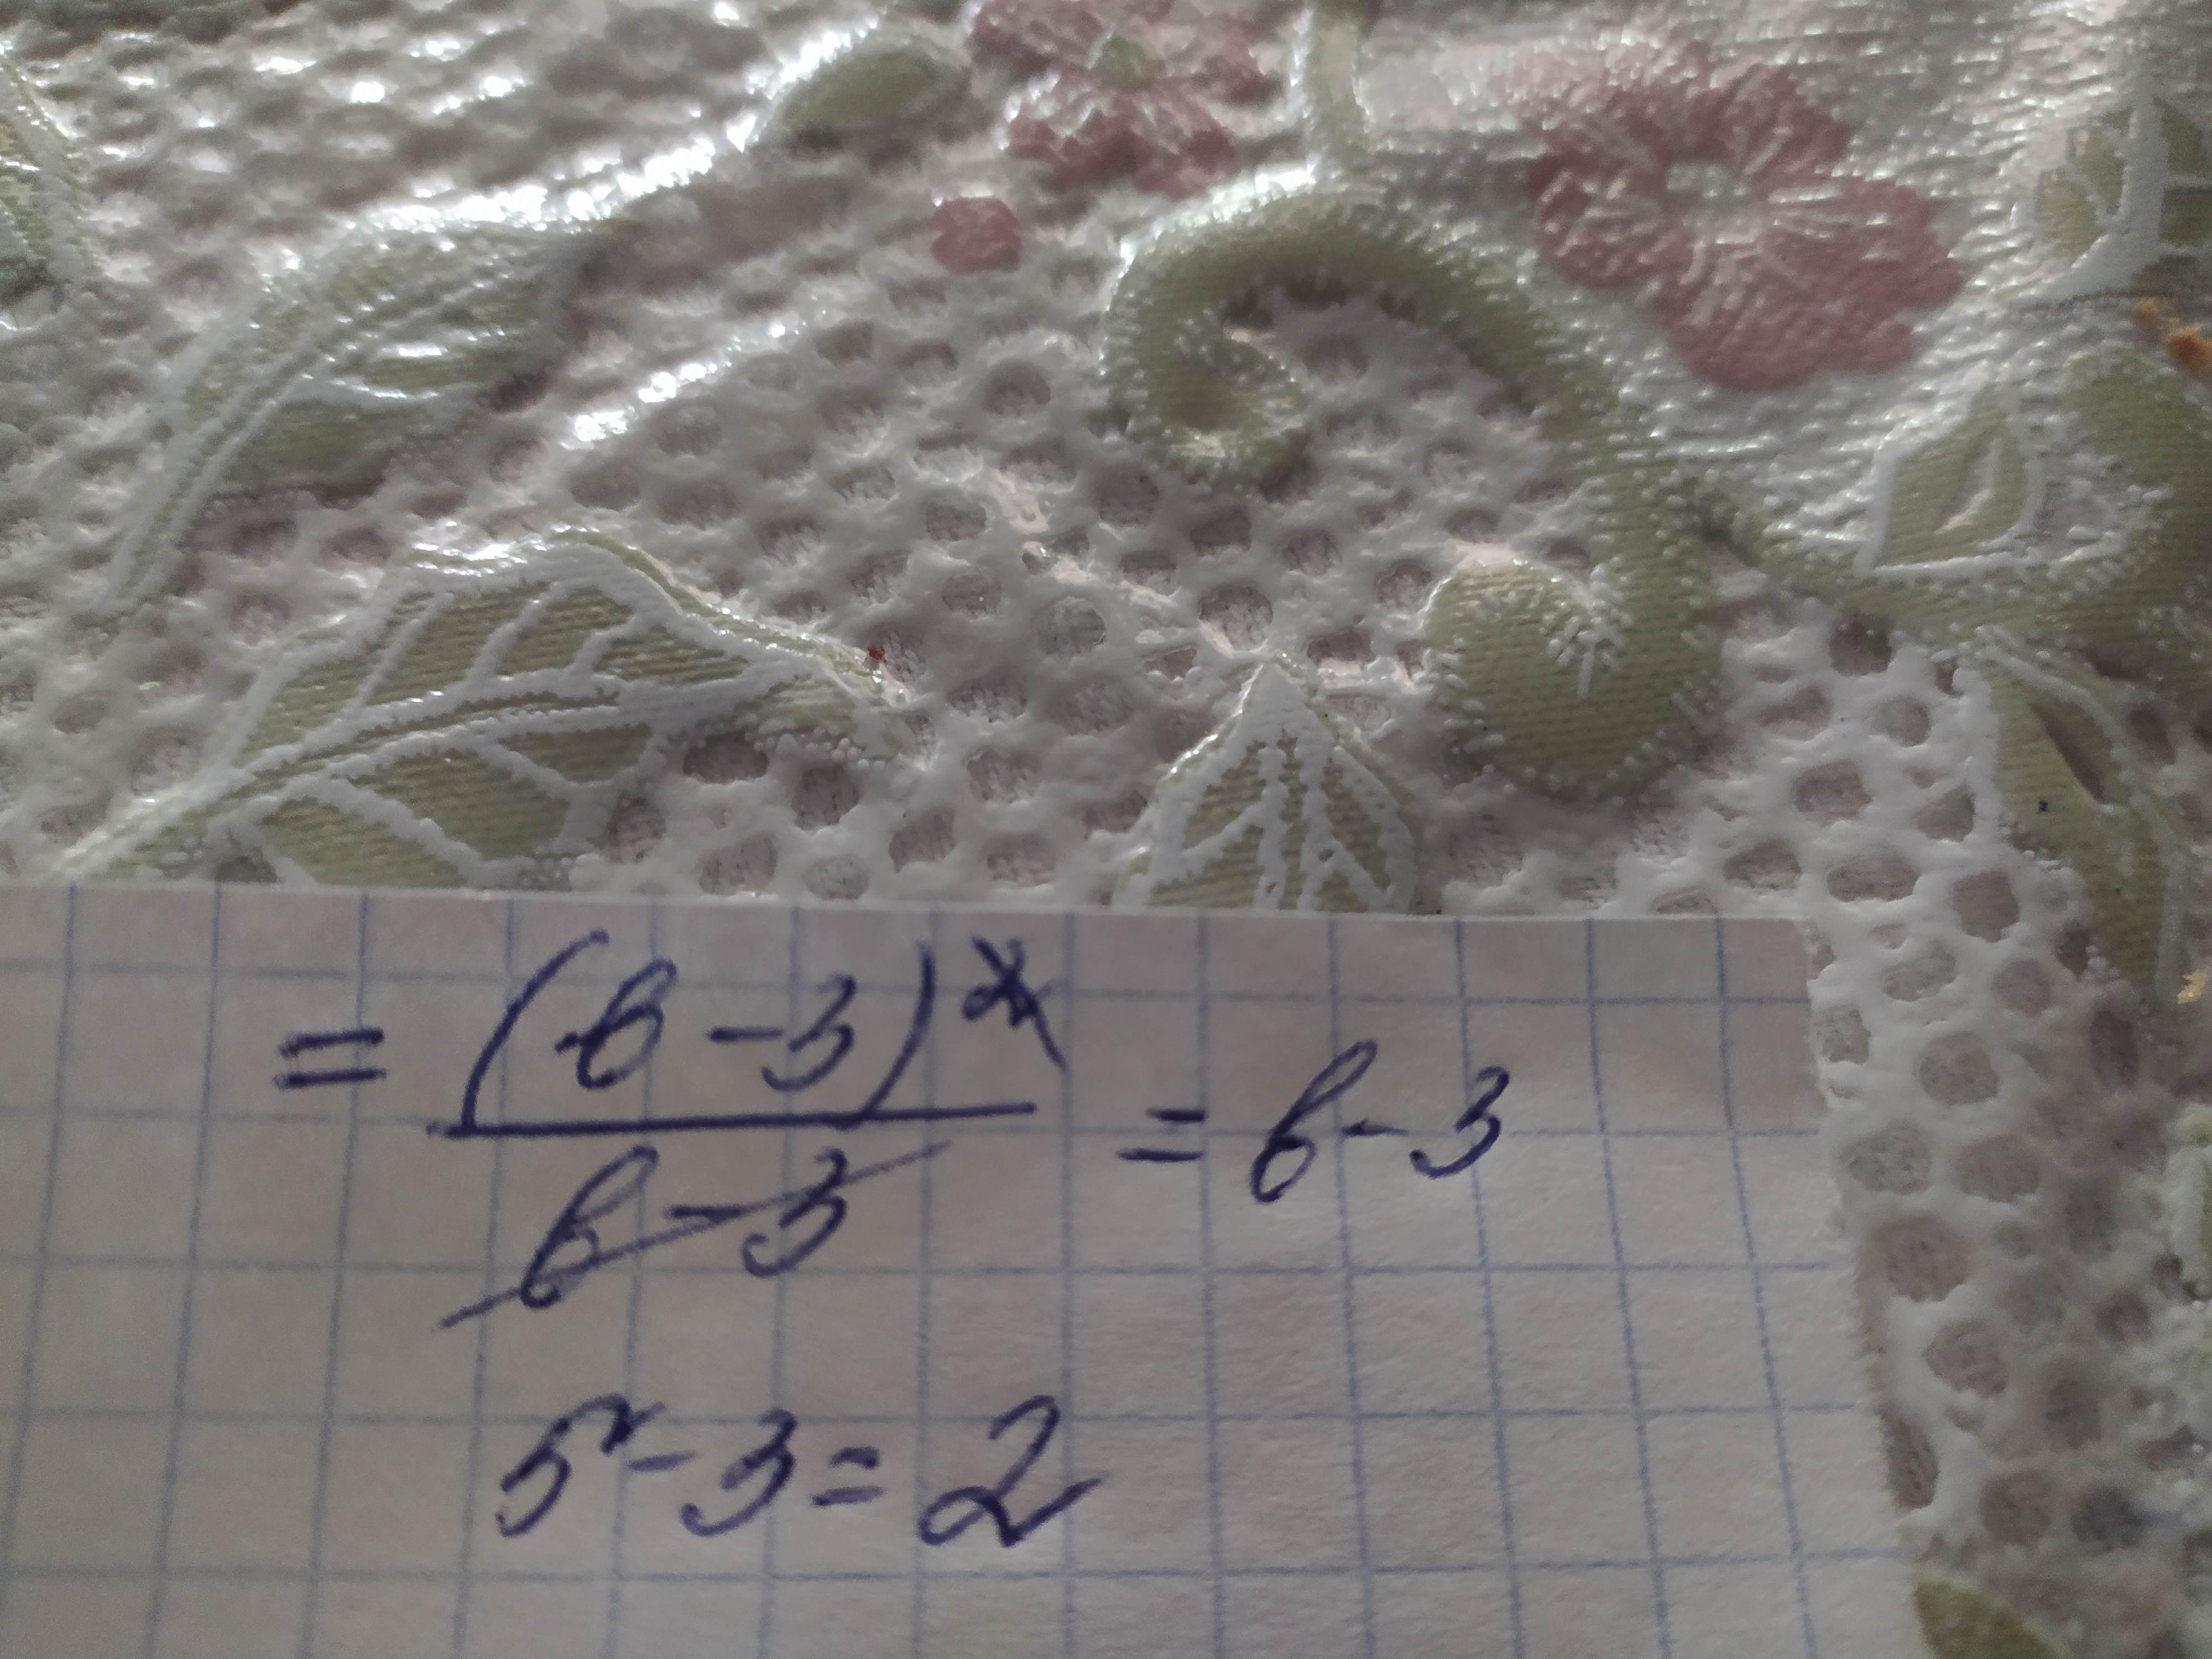 = (b - 3)² / b - 3 = b - 3
5 - 3 = 2